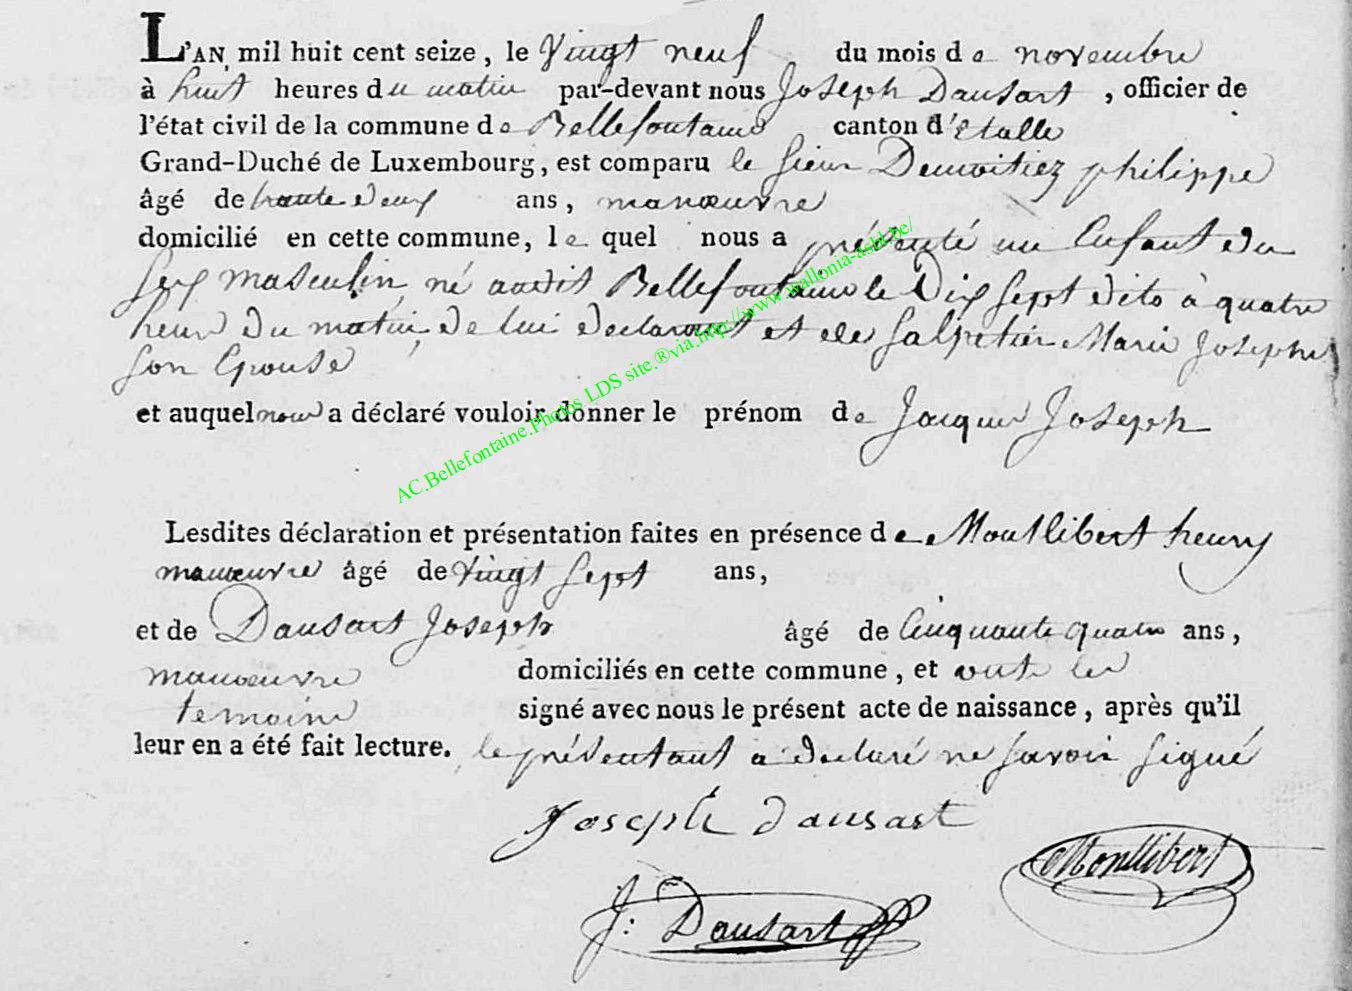 L'AN mil huit cent seize, le Vingt neuf du mois de novembre
à huit heures du matin par-devant nous Joseph Dausart, officier de
l'état civil de la commune de Bellefontaine canton d'Etalle
Grand-Duché de Luxembourg, est comparu le sieur Demoitiez philippe
âgé de trante deux ans, manœuvre
domicilié en cette commune, le quel nous a présenté un Enfant du
sex masculin né audit Bellefontaine le Dix sept dito à quatre
heur du matin, de lui declarant et de Salpetier Marie Josephe
son Epouse
et auquel nous a déclaré vouloir donner le prénom de Jacques Joseph
AC.Bellefontaine.Photos LDS site.®via.http://www.wallonia-asbl.be/
Lesdites déclaration et présentation faites en présence de Montlibert henry
manœuvre âgé de Vingt sept ans,
et de Dausart Joseph âgé de Cinquante quatre ans,
manœuvre domiciliés en cette commune, et ont les
temoins signé avec nous le présent acte de naissance, après qu'il
leur en a été fait lecture. le présentant a declaré ne savoir signé
Joseph Dausart
Montlibert
J: Dausart